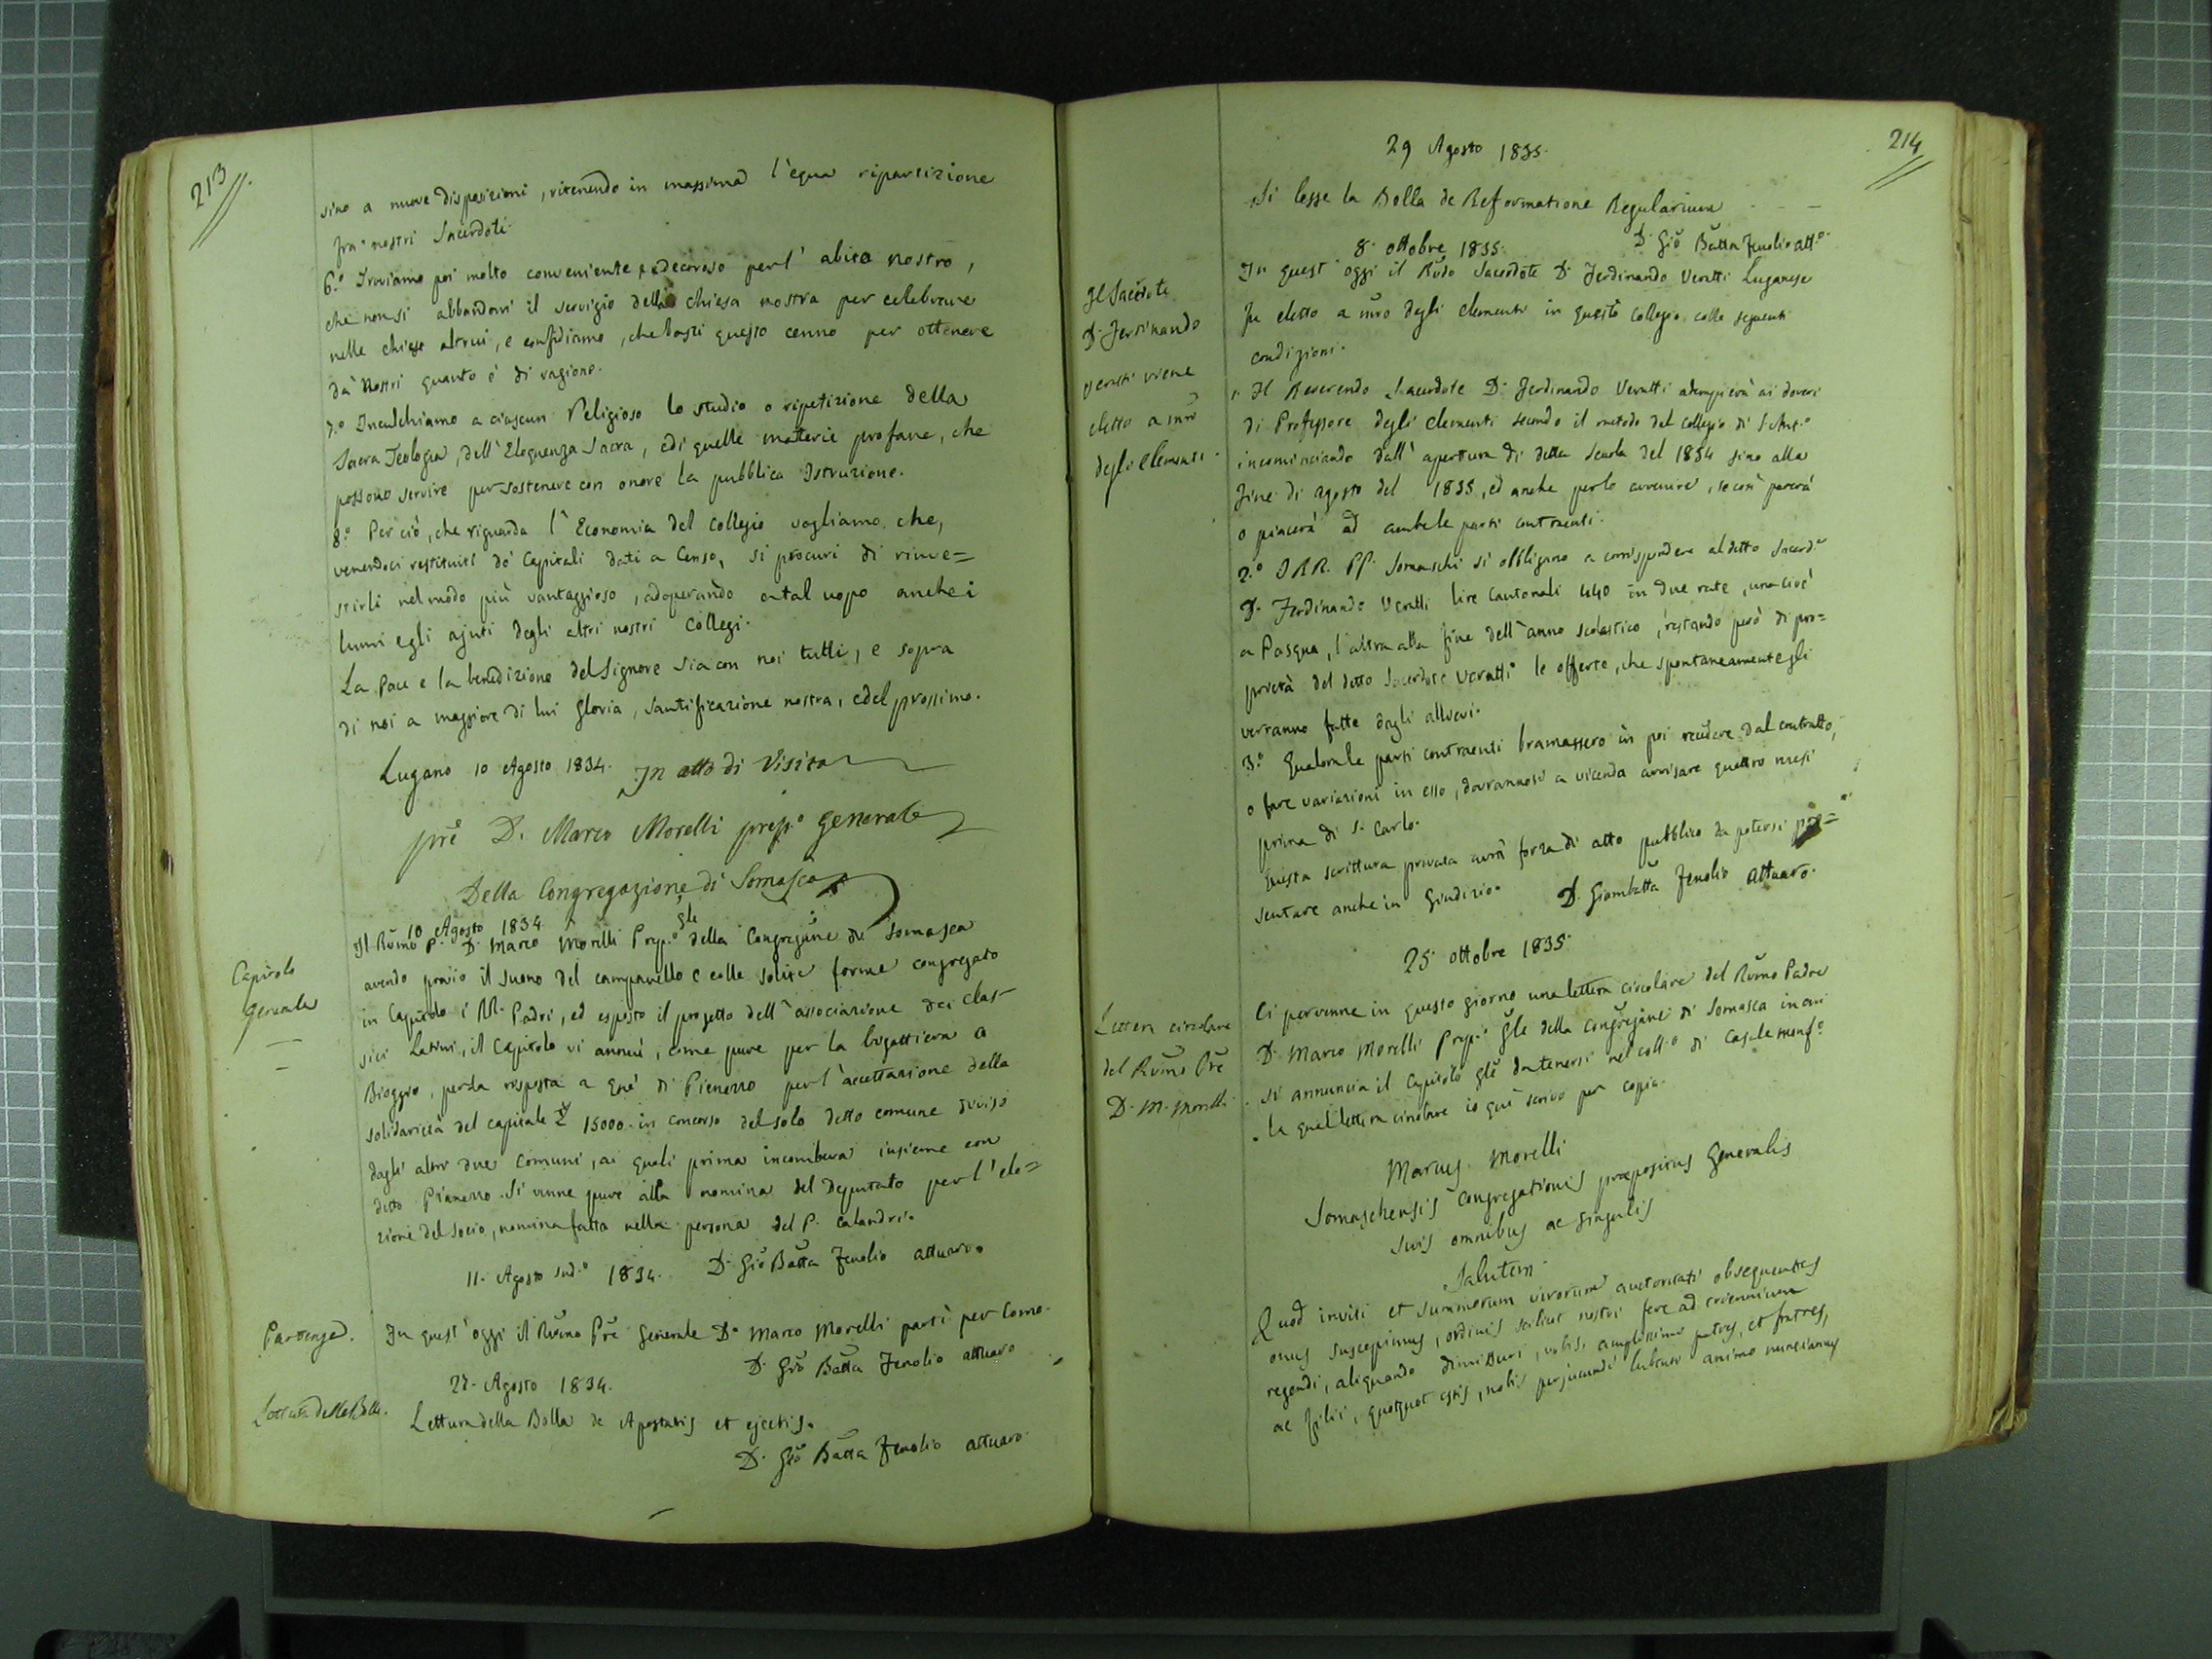 213
sino a nuove disposizioni, ritenendo in massima l'equa ripartizione
fra' nostri Sacerdoti.
6.° Troviamo poi molto conveniente, e decoroso per l'abito nostro,
che non si abbandoni il servigio della chiesa nostra per celebrare
nelle chiese altrui, e confidiamo, che basti questo cenno per ottenere
da' Nostri quanto è di ragione.
7.° Inculchiamo a ciascun Religioso lo studio o ripetizione della
Sacra Teologia, dell'Eloquenza Sacra, e di quelle materie profane, che
possono servire per sostenere con onore la pubblica Istruzione.
8.° Per ciò, che riguarda l'Economia del Collegio vogliamo che,
venendoci restituiti de' Capitali dati a Censo, si procuri di rinve=
stirli nel modo più vantaggioso, adoperando a tal uopo anche i
lumi e gli ajuti degli altri nostri Collegi.
La Pace e la benedizione del Signore sia con noi tutti, e sopra
di noi a maggiore di lui gloria, santificazione nostra, e del prossimo.
Lugano 10 Agosto 1834. In atto di Visita
pre D. Marco Morelli prep.° Generale
Della Congregazione di Somasca
10 Agosto 1834.
Capitolo
Generale
Il Rvmo P. D. Marco Morelli Prep.° gle della Congregne di Somasca
avendo previo il suono del campanello e colle solite forme congregato
in Capitolo i RR. Padri, ed esposto il progetto dell'associazione dei clas-
sici Latini, il Capitolo vi annuì, come pure per la bigattiera a
Bioggio, per la risposta a que' di Pianezzo per l'accettazione della
solidarietà del capitale 15000. in concorso del solo detto comune diviso
dagli altri due Comuni, ai quali prima incombeva insieme con
detto Pianezzo. Si venne pure alla nomina del Deputato per l'ele=
zione del socio, nomina fatta nella persona del P. Calandri.
D. Gio Batta Fenolio attuaro.
11. Agosto sud.° 1834.
Partenza.
In quest'oggi il Rvmo Pre Generale D. Marco Morelli partì per Como.
D. Gio Batta Fenolio attuaro
27. Agosto 1834.
Lettura della Bolla.
Lettura della Bolla de Apostatis et ejectis.
D. Gio Batta Fenolio attuaro.
214
29 Agosto 1835.
Si lesse la Bolla de Reformatione Regularium
D. Gio Batta Fenolio att.°
8. ottobre 1835.
Il Sacerdote
D. Ferdinando
Veratti viene
eletto a mro
degli Elementi.
In quest'oggi il Rvdo Sacerdote D. Ferdinando Veratti Luganese
fu eletto a mro degli elementi in questo Collegio colle seguenti
condizioni.
1. Il Reverendo Sacerdote D. Ferdinando Veratti adempierà ai doveri
di Professore degli elementi secondo il metodo del Collegio di S. Ant.°
incominciando dall'apertura di detta Scuola del 1834 sino alla
fine di agosto del 1835, ed anche per lo avvenire, se così parerà
o piacerà ad ambe le parti contraenti.
2.° I RR. PP. Somaschi si obbligano a corrispondere al detto Sacerd.e
D. Ferdinando Veratti lire Cantonali 440 in due rate, una cioè
a Pasqua, l'altra alla fine dell'anno scolastico, restando però di pro=
prietà del detto Sacerdote Veratti le offerte, che spontaneamente gli
verranno fatte dagli allievi.
3.° Qualora le parti contraenti bramassero in poi recedere dal contratto,
o fare variazioni in esso, dovrannosi a vicenda avvisare quattro mesi
prima di S. Carlo.
Questa scrittura privata avrà forza di atto pubblico da potersi pre=
sentare anche in Giudizio. D. Giambatta Fenolio Attuaro.
25 ottobre 1835.
Lettera circolare
del Rvmo Pre
D. M. Morelli.
Ci pervenne in questo giorno una lettera circolare del Rvmo Padre
D. Marco Morelli Prep.° gle della Congregne di Somasca in cui
si annuncia il Capitolo gle da tenersi nel coll.° di Casale monf.°
la qual lettera circolare io qui scrivo per copia.
Marcus Morelli
Somaschensis Congregationis praepositus Generalis
suis omnibus ac singulis
Salutem.
Quod inviti et summorum virorum auctoritati obsequentes
onus suscepimus, ordinis scilicet nostri fere ad triennium
regendi, aliquando dimitturi, vobis, amplissimi patres, et fratres,
ac filii, quotquot estis, nobis perjucundi lubenti animo nunciamus